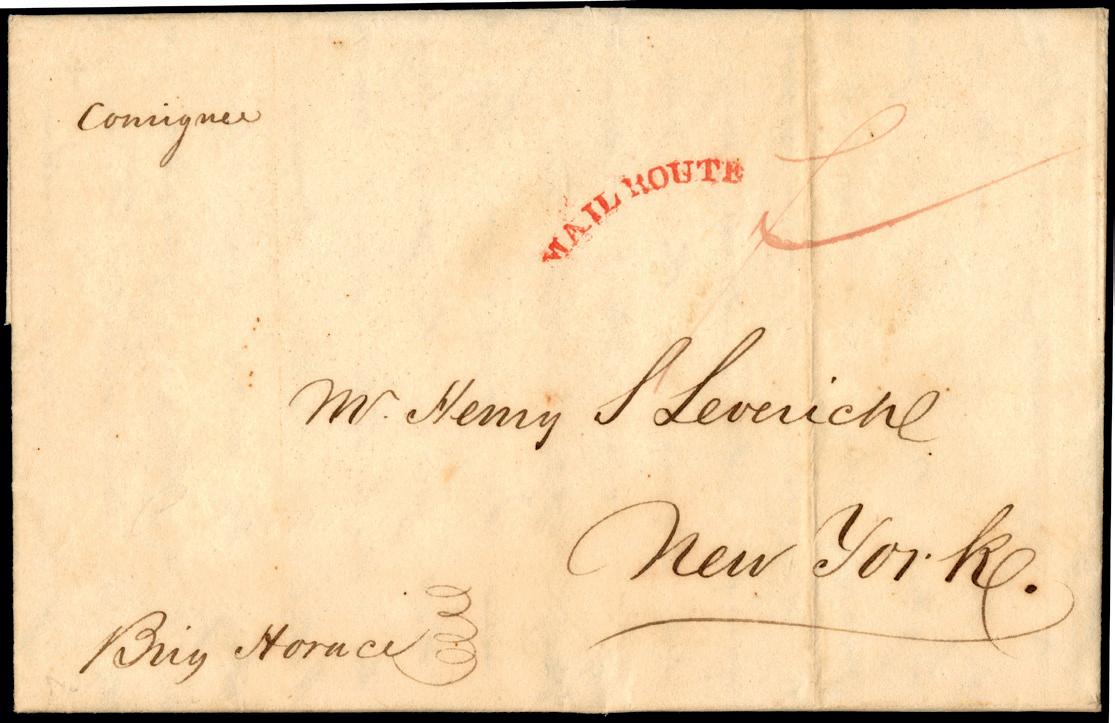 Consignee
MAIL ROUTE
Mr. Henry S Leverich
New York.
Brig Horace